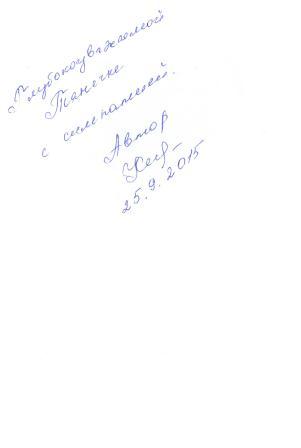 Глубокоуважаемой
Танечке
с симпатией.
Автор
25.9.2015